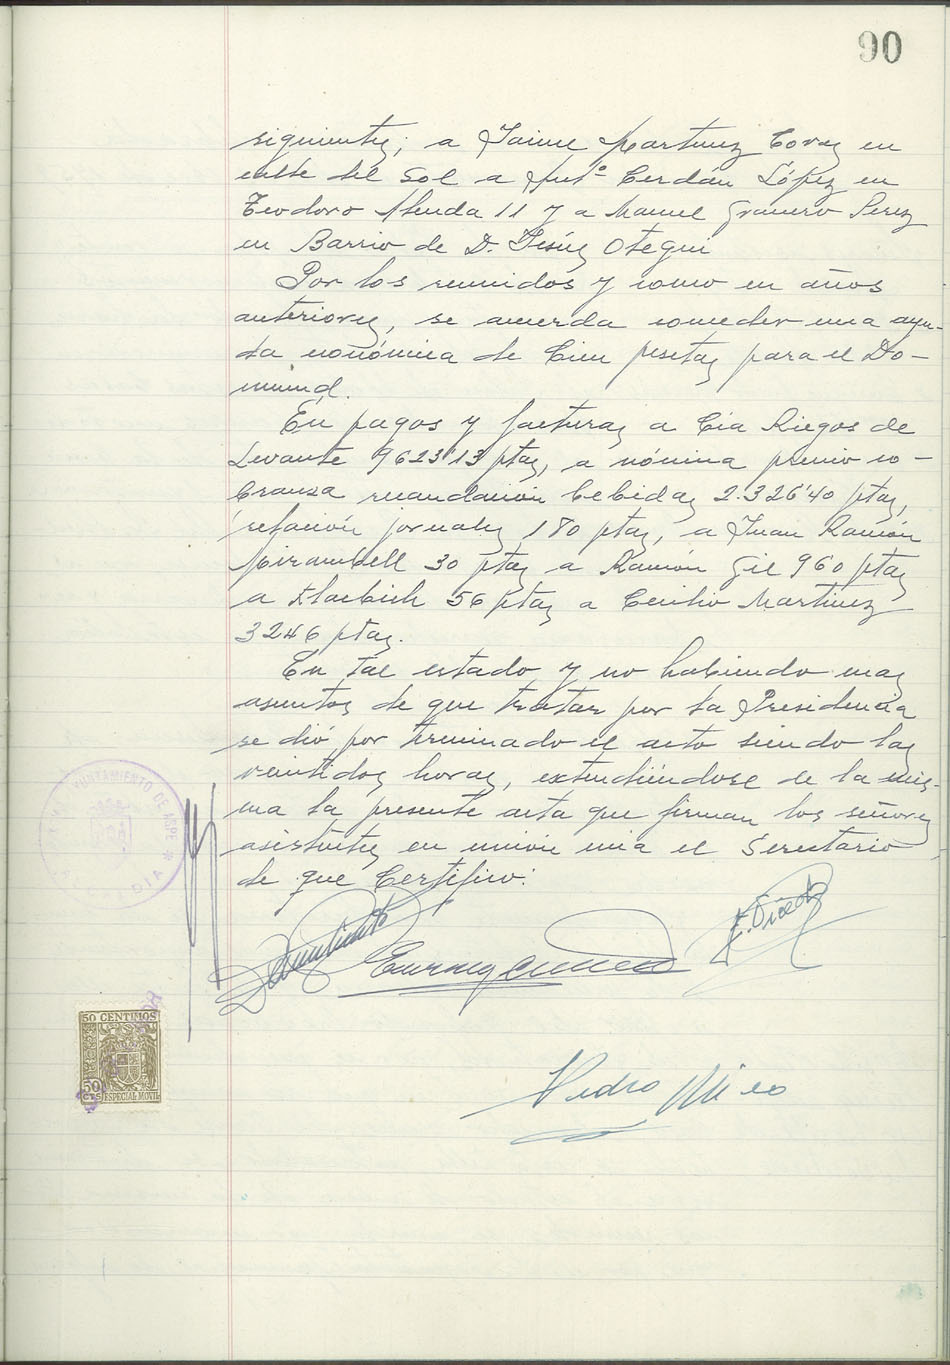 90
siguientes; a Jaime Martinez Covas en
calle del Sol a Antº Cerdán López en
Teodoro Alenda 11 y a Manuel Granero Perez
en Barrio de D. Jesús Otegui
Por los reunidos y como en años
anteriores, se acuerda conceder una ayu-
da económica de Cien pesetas para el Do-
mund.
En pagos y facturas a Cia Riegos de
Levante 9623'13 ptas, a nómina premio co-
branza recaudación bebidas 2.326'40 ptas,
relación jornales 180 ptas, a Juan Ramón
Mirambell 30 ptas a Ramón Gil 960 ptas
a 56 ptas a Cecilio Martinez
3246 ptas.
En tal estado y no habiendo mas
asuntos de que tratar por la Presidencia
se dió por terminado el acto siendo las
veintidos horas, extendiéndose de la mis-
ma la presente acta que firman los señores
asistentes en unión mia el Secretario,
de que Certifico:
AYUNTAMIENTO DE ASPE
ALCALDIA
50 CENTIMOS
50
CTS ESPECIAL MOVIL
Pedro Mico